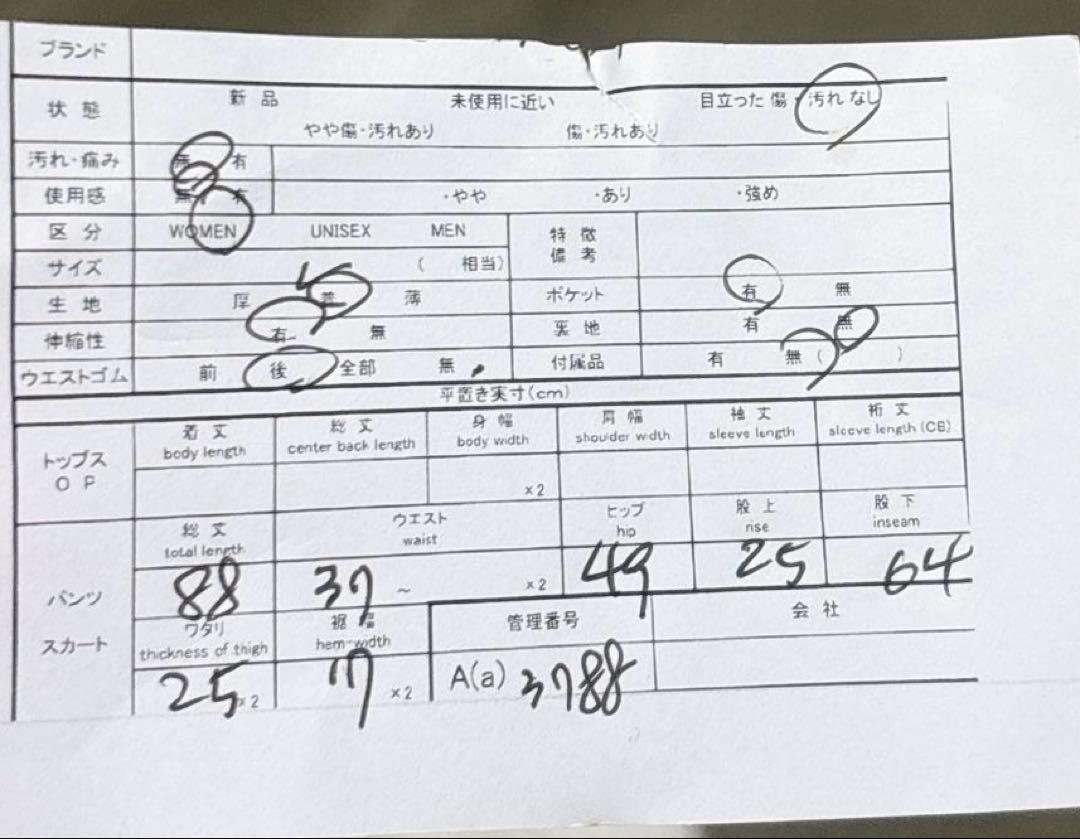 ブランド
状態 新品 未使用に近い 目立った傷・汚れなし
やや傷・汚れあり 傷・汚れあり
汚れ・痛み 無 有
使用感 無 有 ・やや ・あり ・強め
区分 WOMEN UNISEX MEN 特徴
備考
サイズ ( 相当)
生地 厚 普 薄 ポケット 有 無
伸縮性 有 無 裏地 有 無
ウエストゴム 前 後 全部 無 付属品 有 無 ( )
平置き実寸(cm)
着丈 総丈 身幅 肩幅 袖丈 裄丈
body length center back length body width shoulder width sleeve length sleeve length (CB)
トップス
OP
×2
総丈 ウエスト ヒップ 股上 股下
total length waist hip rise inseam
パンツ 88 37 ~ ×2 49 25 64
スカート ワタリ 裾幅 管理番号 会社
thickness of thigh hem width
25 ×2 17 ×2 A(a) 3788